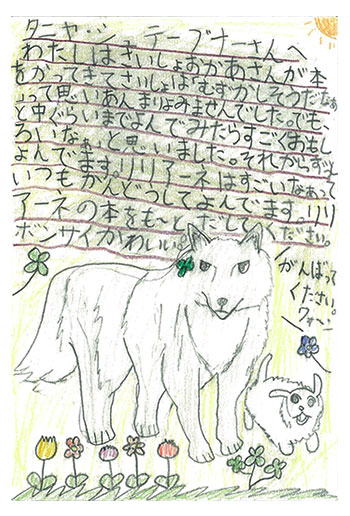 タニャ・シュテーブナーさんへ
わたしはさいしょおかあさんが本
をかってきてさいしょはむずかしそうだなぁ
って思いあんまりよみませんでした。でも、
と中ぐらいまでよんでみたらすごくおもし
ろいなぁと思いました。それからずっと
よんでます。リリアーネはすごいなぁって
いつもかんどうしてよんでます。リリ
アーネの本をも〜とだしてください。
ボンサイかわいい。
がんばって
ください。
ワォ〜ン